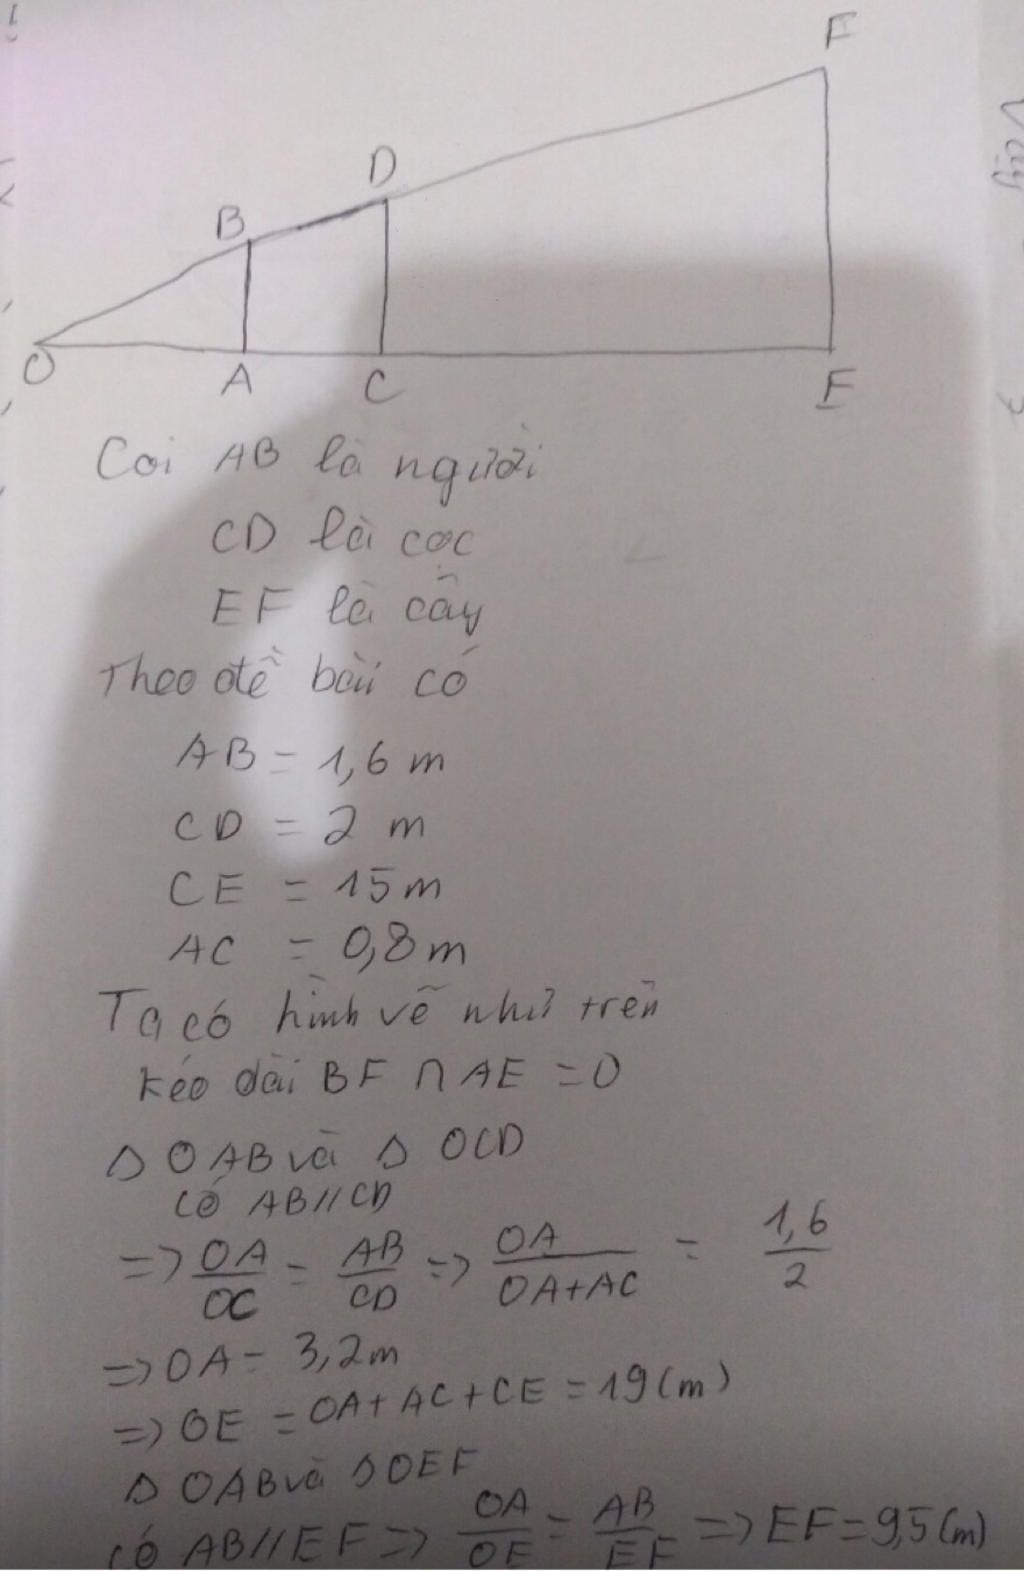 F
D
B
O A C E
Coi AB là người
CD là cọc
EF là cây
Theo đề bài có
AB = 1,6 m
CD = 2 m
CE = 15 m
AC = 0,8 m
Ta có hình vẽ như trên
kéo dài BF ∩ AE = O
Δ OAB và Δ OCD
có AB // CD
=> OA/OC = AB/CD => OA/OA+AC = 1,6/2
=> OA = 3,2 m
=> OE = OA + AC + CE = 19 (m)
Δ OAB và Δ OEF
có AB // EF => OA/OE = AB/EF => EF = 9,5 (m)